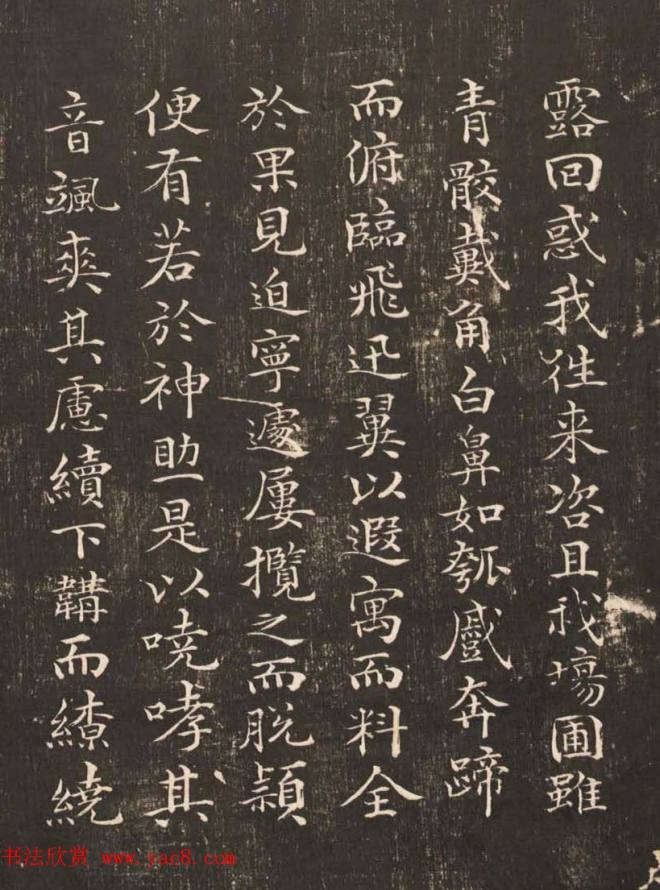 露回惑我往来咨且我場圃雖
青骹戴角白鼻如瓠戯奔蹄
而俯臨飛迅翼以遐寓而料全
於果見迫寧遽屢攬之而脱穎
便有若於神助是以嘵哮其
音颯爽其慮續下韝而繚繞
书法欣赏 www.yac8.com